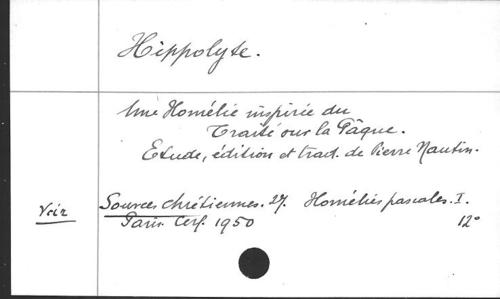 Hippolyte.
Une Homélie inspirée du
Traité sur la Pâque.
Etude, édition et trad. de Pierre Nautin.
Voir Sources chrétiennes. 27. Homélies pascales. I.
Paris. Cerf. 1950 12°